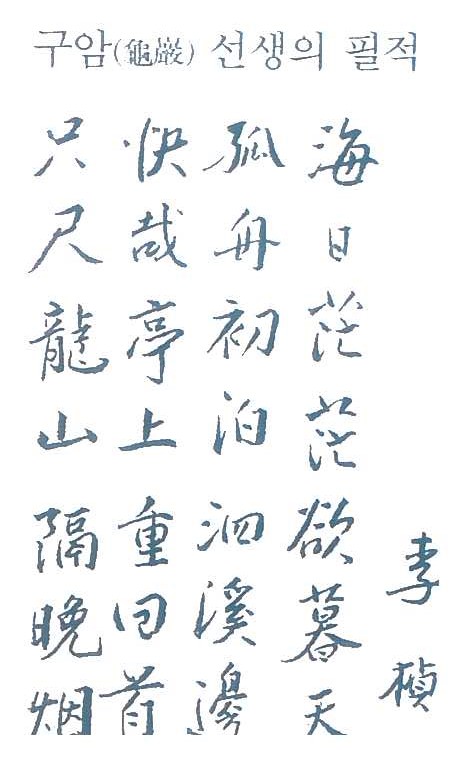 구암(龜巖) 선생의 필적
李楨
海日茫茫欲暮天
孤舟初泊泗溪邊
快哉亭上重回首
只尺龍山隔晩烟